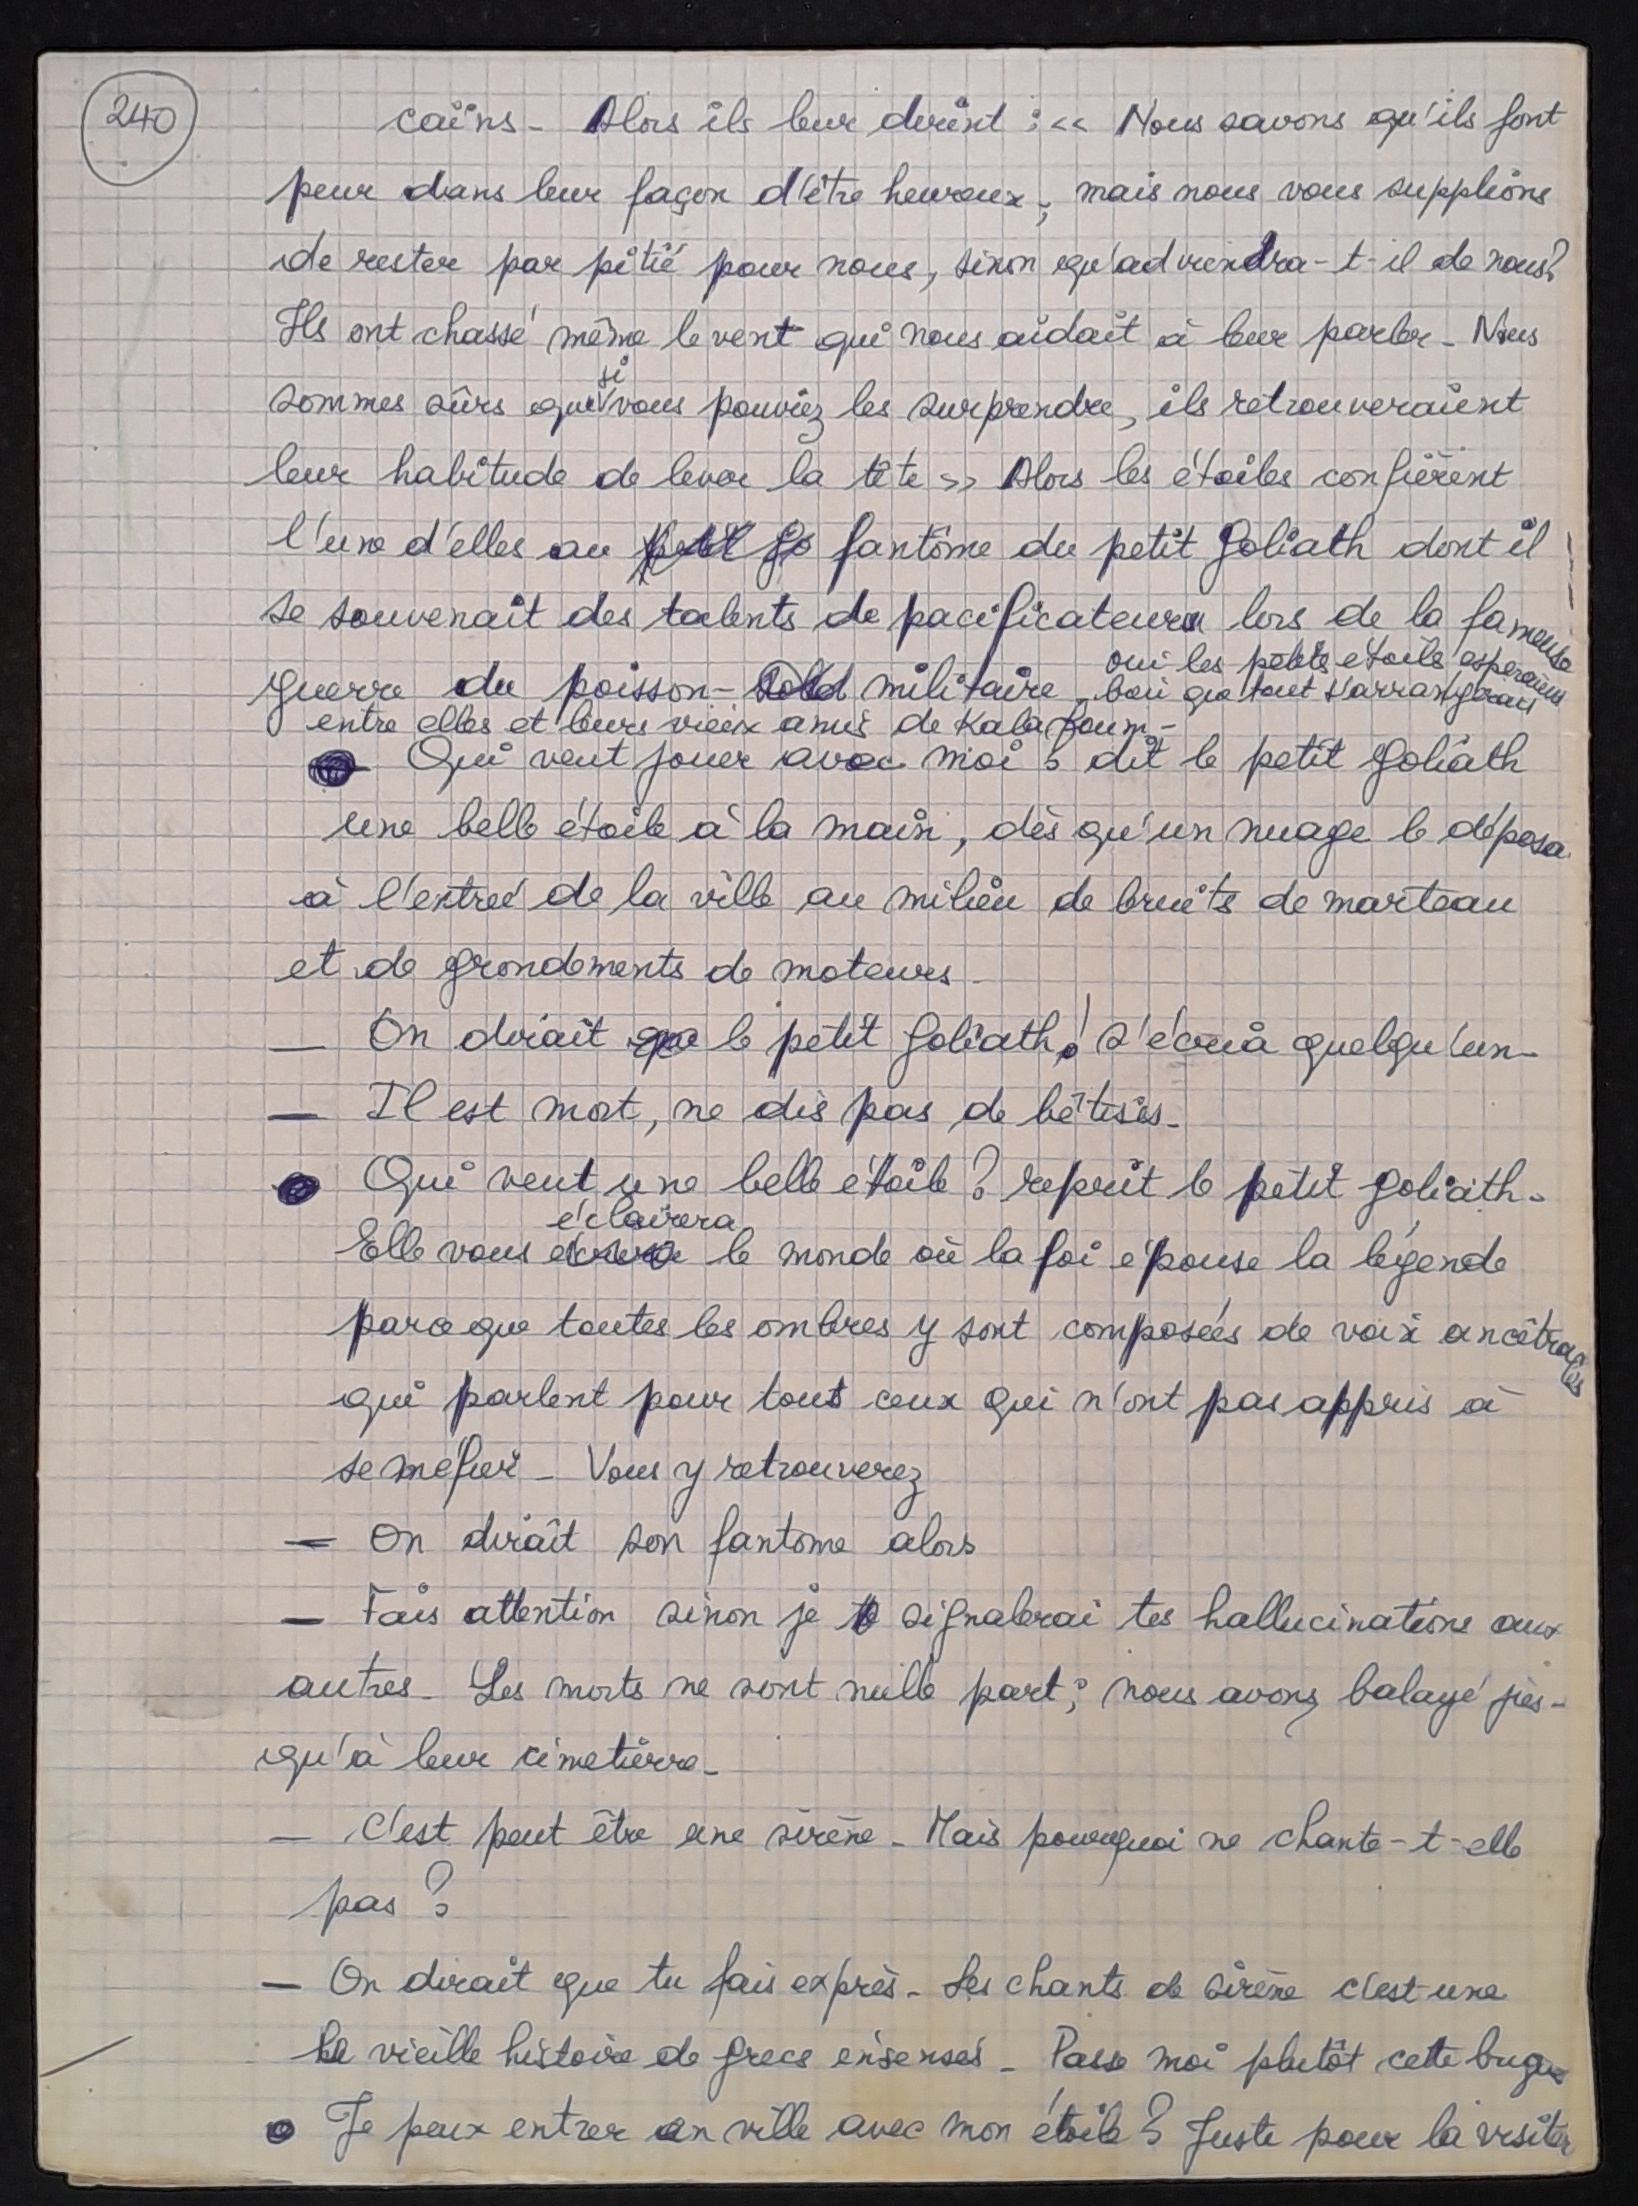 240
caïns - Alors ils leur dirent : « Nous savons qu'ils font
peur dans leur façon d'être heureux, mais nous vous supplions
de rester par pitié pour nous, sinon qu'adviendra-t-il de nous?
Ils ont chassé même le vent qui nous aidait à leur parler - Nous
si
sommes sûrs que vous pouviez les surprendre, ils retrouveraient
leur habitude de lever la tête » Alors les étoiles confièrent
l'une d'elles au petit Go fantôme du petit Goliath dont il
se souvenait des talents de pacificateur lors de la fameuse
guerre du poisson-soldat militaire - oui les petites étoiles espéraient
bien que tout s'arrangerait
entre elles et leurs vieux amis de Kalafoum -
Qui veut jouer avec moi ? dit le petit Goliath
une belle étoile à la main, dès qu'un nuage le déposa
à l'entrée de la ville au milieu de bruits de marteau
et de grondements de moteurs -
— On dirait que le petit Goliath ! s'écria quelqu'un -
— Il est mort, ne dis pas de bêtises -
Qui veut une belle étoile ? reprit le petit Goliath -
éclairera
Elle vous le monde où la foi épouse la légende
parce que toutes les ombres y sont composées de voix ancêtrales
qui parlent pour tous ceux qui n'ont pas appris à
se méfier - Vous y retrouverez
— On dirait son fantome alors
— Fais attention sinon je signalerai tes hallucinations aux
autres - Les morts ne sont nulle part ; nous avons balayé jus-
qu'à leur cimetière -
— C'est peut être une sirène - Mais pourquoi ne chante-t-elle
pas ?
— On dirait que tu fais exprès - Les chants de sirène c'est une
vieille histoire de grecs insensés - Passe moi plutôt cette
Je peux entrer en ville avec mon étoile ? Juste pour la visiter